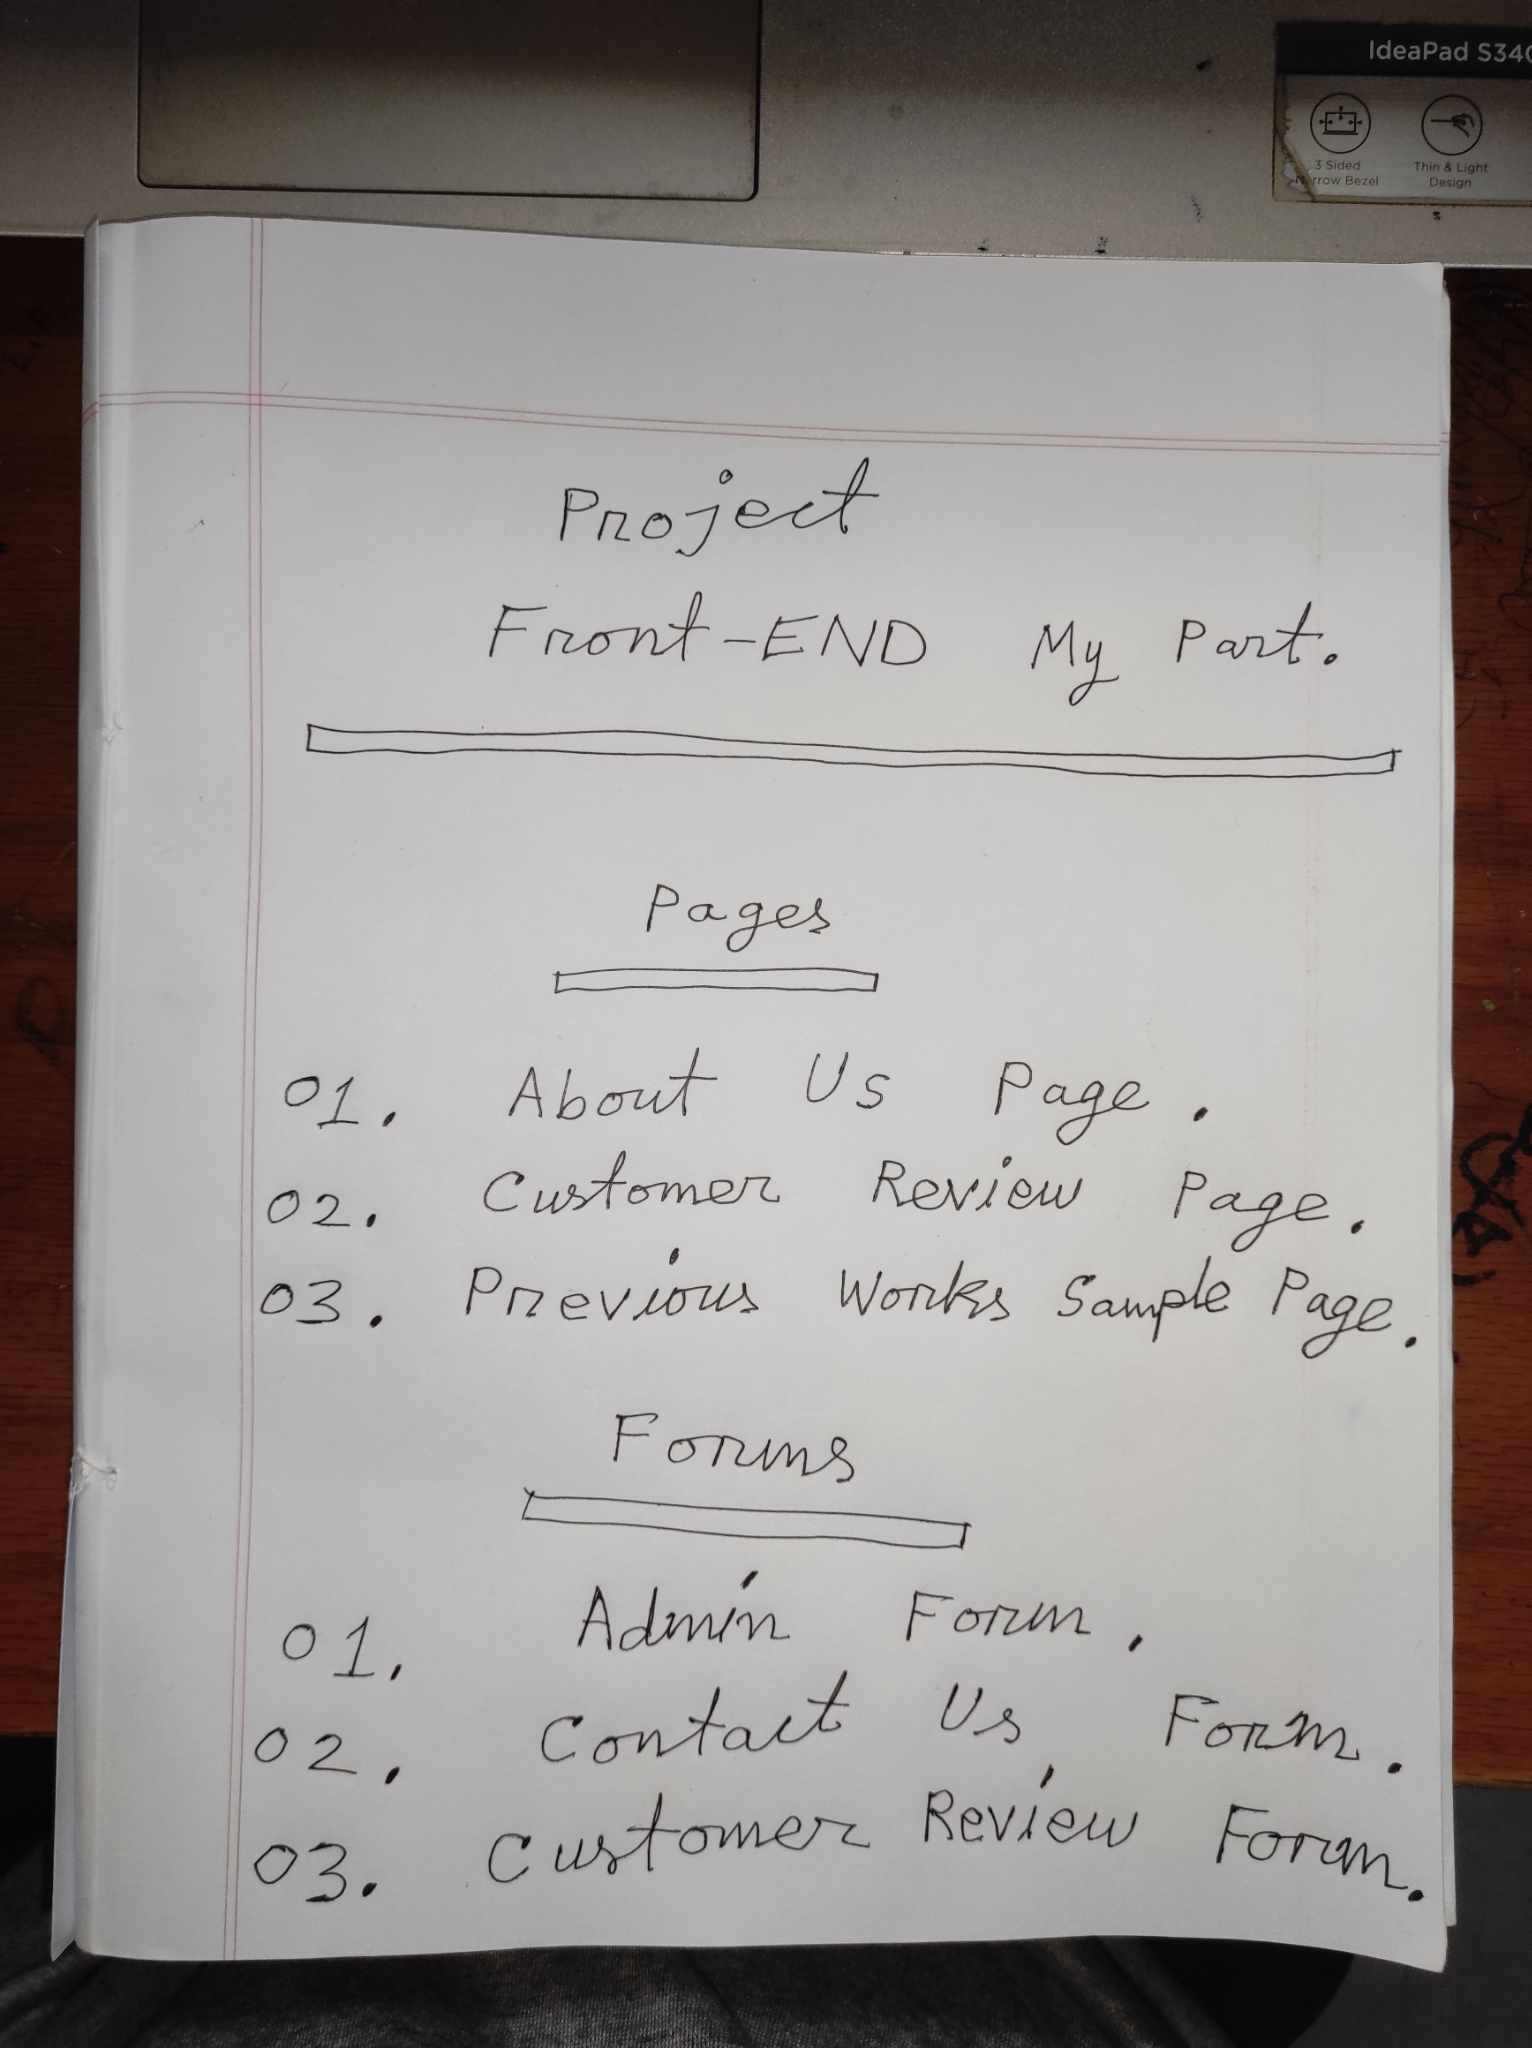 IdeaPad S340
3 Sided
Narrow Bezel
Thin & Light
Design
Project
Front-END My Part.
Pages
01. About Us Page.
02. Customer Review Page.
03. Previous Works Sample Page.
Forms
01. Admin Form.
02. Contact Us Form.
03. Customer Review Form.